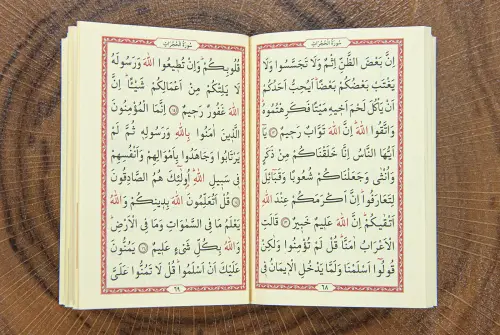 سُورَةُ الْحُجُرَاتِ
اِنَّ بَعْضَ الظَّنِّ اِثْمٌ وَلَا تَجَسَّسُوا وَلَا
يَغْتَبْ بَعْضُكُمْ بَعْضًا اَيُحِبُّ اَحَدُكُمْ
اَنْ يَأْكُلَ لَحْمَ اَخِيهِ مَيْتًا فَكَرِهْتُمُوهُ
وَاتَّقُوا اللّٰهَ اِنَّ اللّٰهَ تَوَّابٌ رَحِيمٌ ﴿١٢﴾ يَٓا
اَيُّهَا النَّاسُ اِنَّا خَلَقْنَاكُمْ مِنْ ذَكَرٍ
وَاُنْثٰى وَجَعَلْنَاكُمْ شُعُوبًا وَقَبَٓائِلَ
لِتَعَارَفُوا اِنَّ اَكْرَمَكُمْ عِنْدَ اللّٰهِ
اَتْقٰيكُمْ اِنَّ اللّٰهَ عَلِيمٌ خَبِيرٌ ﴿١٣﴾ قَالَتِ
الْاَعْرَابُ اٰمَنَّا قُلْ لَمْ تُؤْمِنُوا وَلٰكِنْ
قُولُٓوا اَسْلَمْنَا وَلَمَّا يَدْخُلِ الْاِيمَانُ فِي
٦٨
سُورَةُ الْحُجُرَاتِ
قُلُوبِكُمْ وَاِنْ تُطِيعُوا اللّٰهَ وَرَسُولَهُ
لَا يَلِتْكُمْ مِنْ اَعْمَالِكُمْ شَيْـًٔا اِنَّ
اللّٰهَ غَفُورٌ رَحِيمٌ ﴿١٤﴾ اِنَّمَا الْمُؤْمِنُونَ
الَّذِينَ اٰمَنُوا بِاللّٰهِ وَرَسُولِهِ ثُمَّ لَمْ
يَرْتَابُوا وَجَاهَدُوا بِاَمْوَالِهِمْ وَاَنْفُسِهِمْ
فِي سَبِيلِ اللّٰهِ اُو۬لٰٓئِكَ هُمُ الصَّادِقُونَ
﴿١٥﴾ قُلْ اَتُعَلِّمُونَ اللّٰهَ بِدِينِكُمْ وَاللّٰهُ
يَعْلَمُ مَا فِي السَّمٰوَاتِ وَمَا فِي الْاَرْضِ
وَاللّٰهُ بِكُلِّ شَيْءٍ عَلِيمٌ ﴿١٦﴾ يَمُنُّونَ
عَلَيْكَ اَنْ اَسْلَمُوا قُلْ لَا تَمُنُّوا عَلَيَّ
٦٩